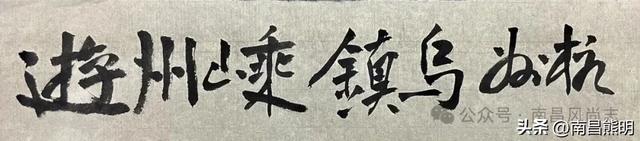 杭州烏鎮嵊州遊
公众号·南昌风尚志
头条@南昌熊明